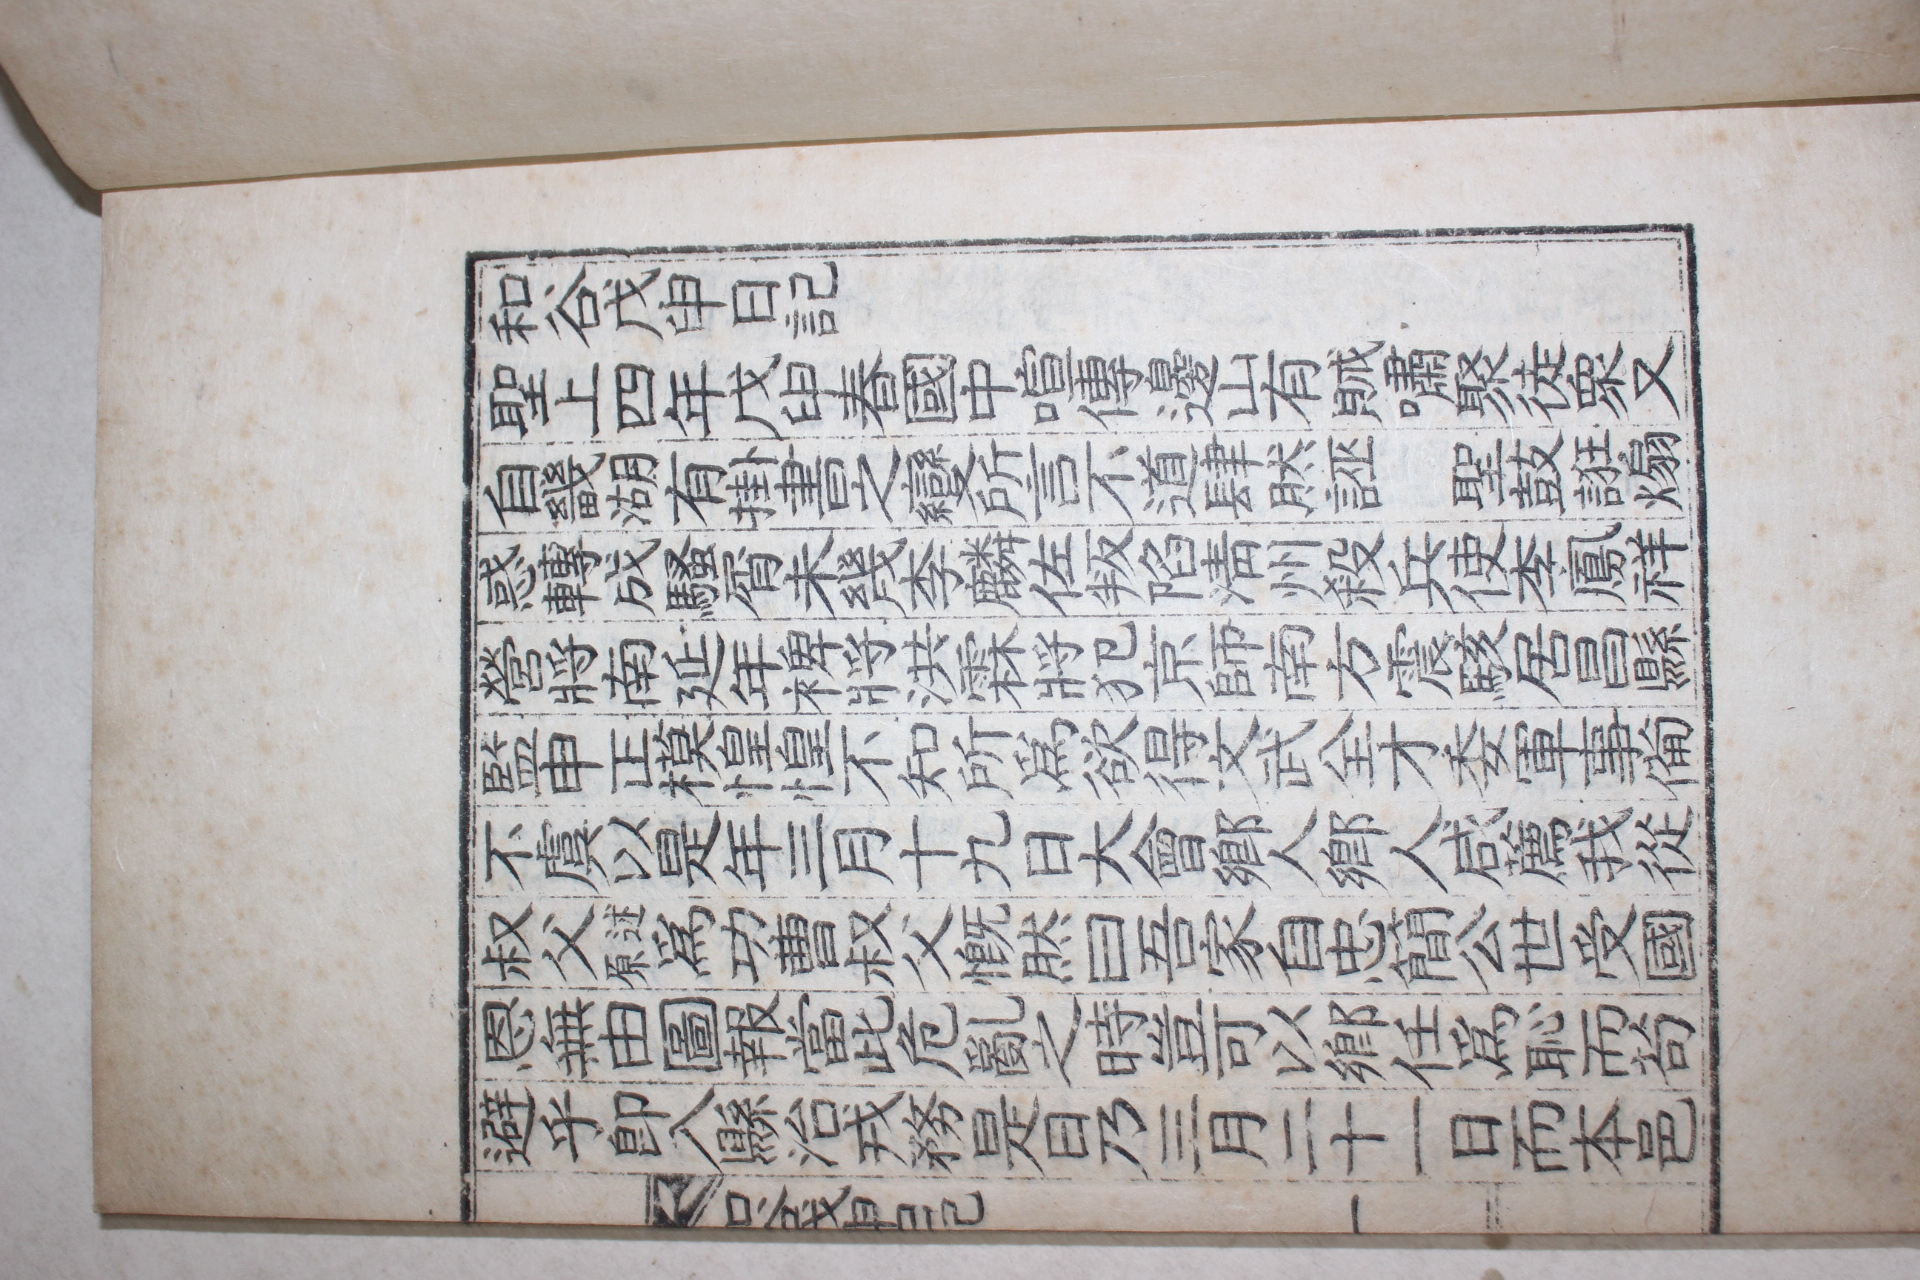 和谷戊申日記
聖上四年戊申春國中喧傳邊山有賊嘯聚徒衆又
自畿湖有掛書之變所言不道肆然誣　聖鼓誑煽
惑轉成騷屑未幾李麟佐叛陷淸州殺兵使李鳳祥
營將南延年裨將洪霖將犯京師南方震駭居昌縣
監申正模惶惶不知所爲欲得文武全才委軍事備
不虞以是年三月十九日大會鄕人鄕人咸薦我從
叔父述原爲功曹叔父慨然曰吾家自忠簡公世受國
恩無由圖報當此危亂之時豈可以鄕任爲恥而苟
避乎卽入縣治戎務是日乃三月二十一日而本邑
和谷戊申日記　一